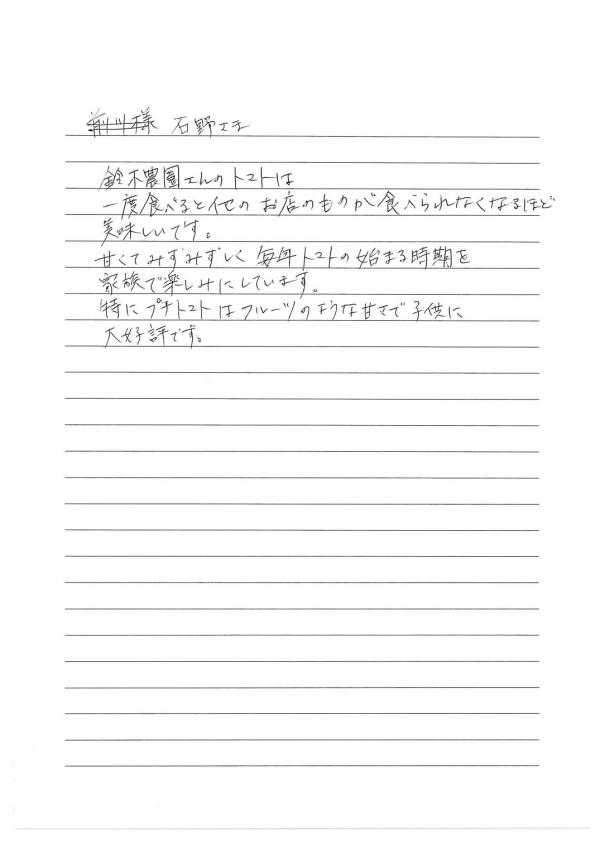 前川様 石野さま
鈴木農園さんのトマトは
一度食べると他のお店のものが食べられなくなるほど
美味しいです。
甘くてみずみずしく毎年トマトの始まる時期を
家族で楽しみにしています。
特にプチトマトはフルーツのような甘さで子供に
大好評です。